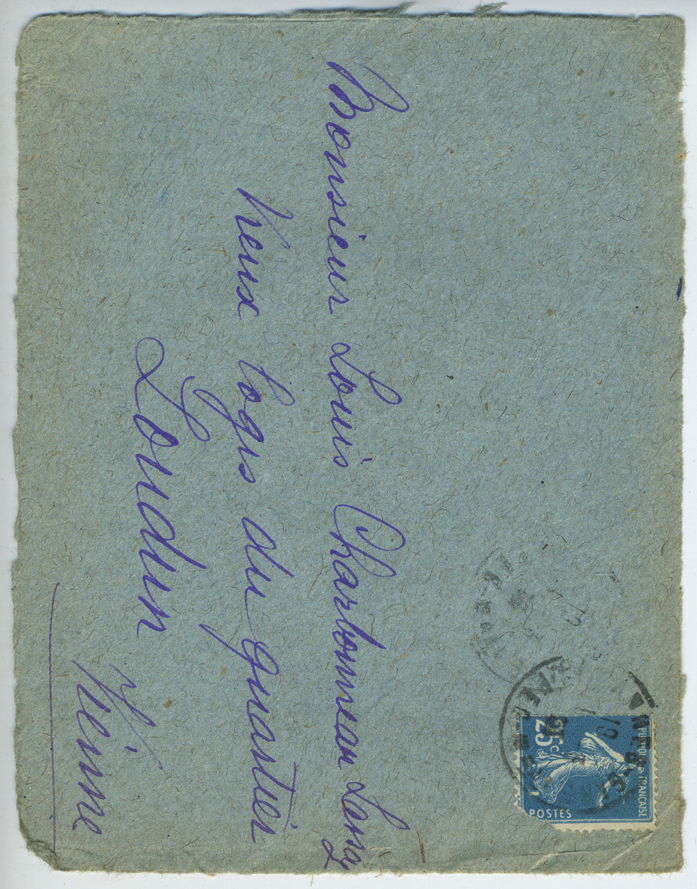 Monsieur Louis Charbonneau Lassay
Vieux logis du quartier
Loudun
Vienne
REPUBLIQUE FRANÇAISE
25c
POSTES